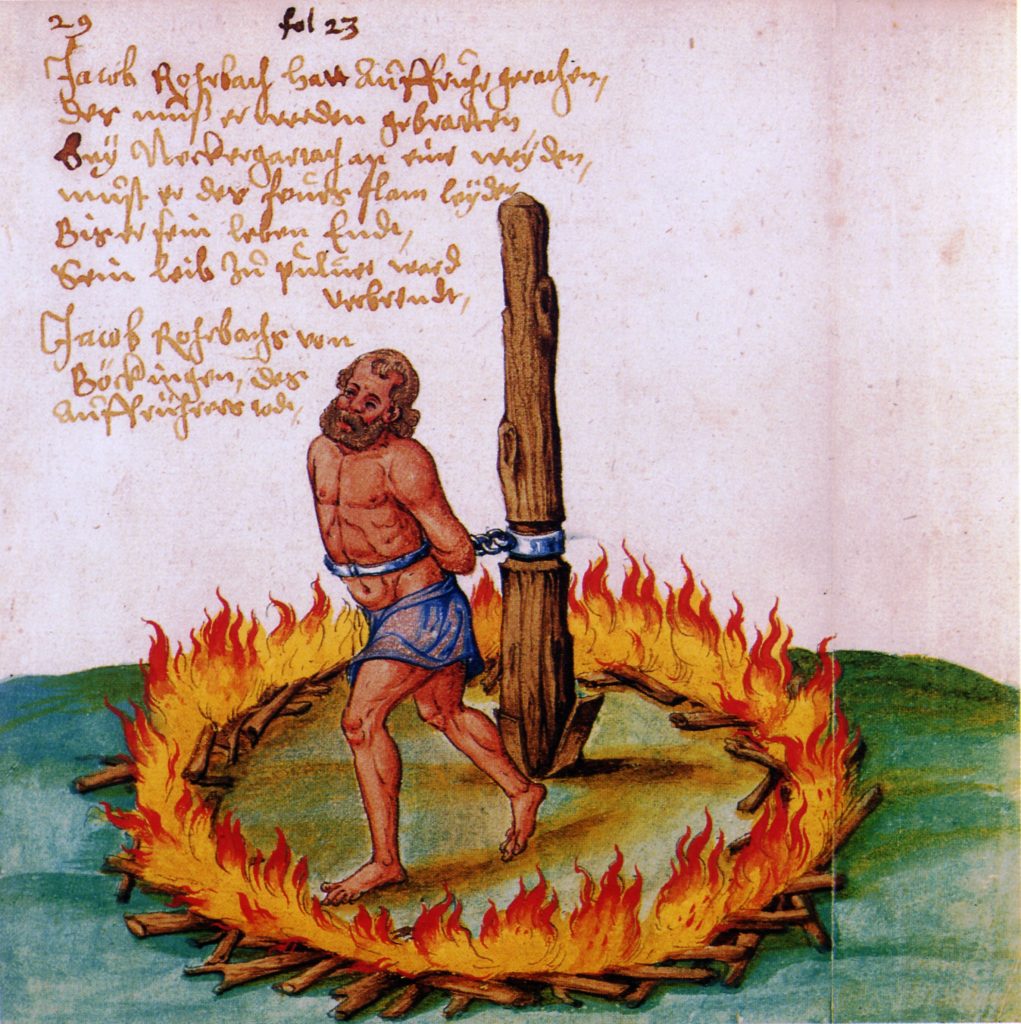 29
fol 23
Jacob Rohrbach hatt Auffruhr gerathen,
des muß er werden gebratten
Bey Neckergartach an eine weyden,
must er des feuers flam leyden
Bis er sein leben Endt,
Sein leib zu puluer ward
verbrendt,
Jacob Rohrbachs von
Böckingen, des
Auffrührers todt,